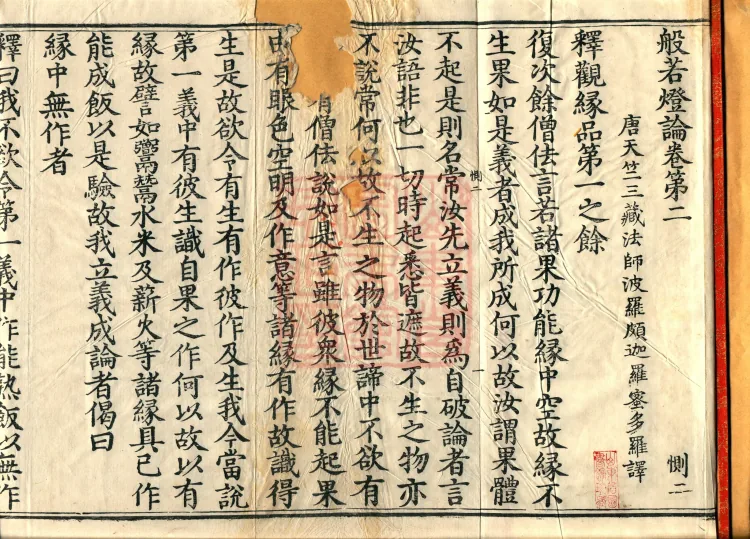 般若燈論卷第二 惻二
唐天竺三藏法師波羅頗迦羅蜜多羅譯
釋觀緣品第一之餘
復次餘僧佉言若諸果功能緣中空故緣不
生果如是義者成我所成何以故汝謂果體
不起是則名常汝先立義則爲自破論者言
惻二 一
汝語非也一切時起悉皆遮故不生之物亦
不說常何以故不生之物於世諦中不欲有
有僧佉說如是言雖彼衆緣不能起果
由有眼色空明及作意等諸緣有作故識得
生是故欲令有生有作彼作及生我今當說
第一義中有彼生識自果之作何以故以有
緣故譬如水米及薪火等諸緣具已作
能成飯以是驗故我立義成論者偈曰
緣中無作者
釋曰我不欲令第一義中作能熟飯以無作